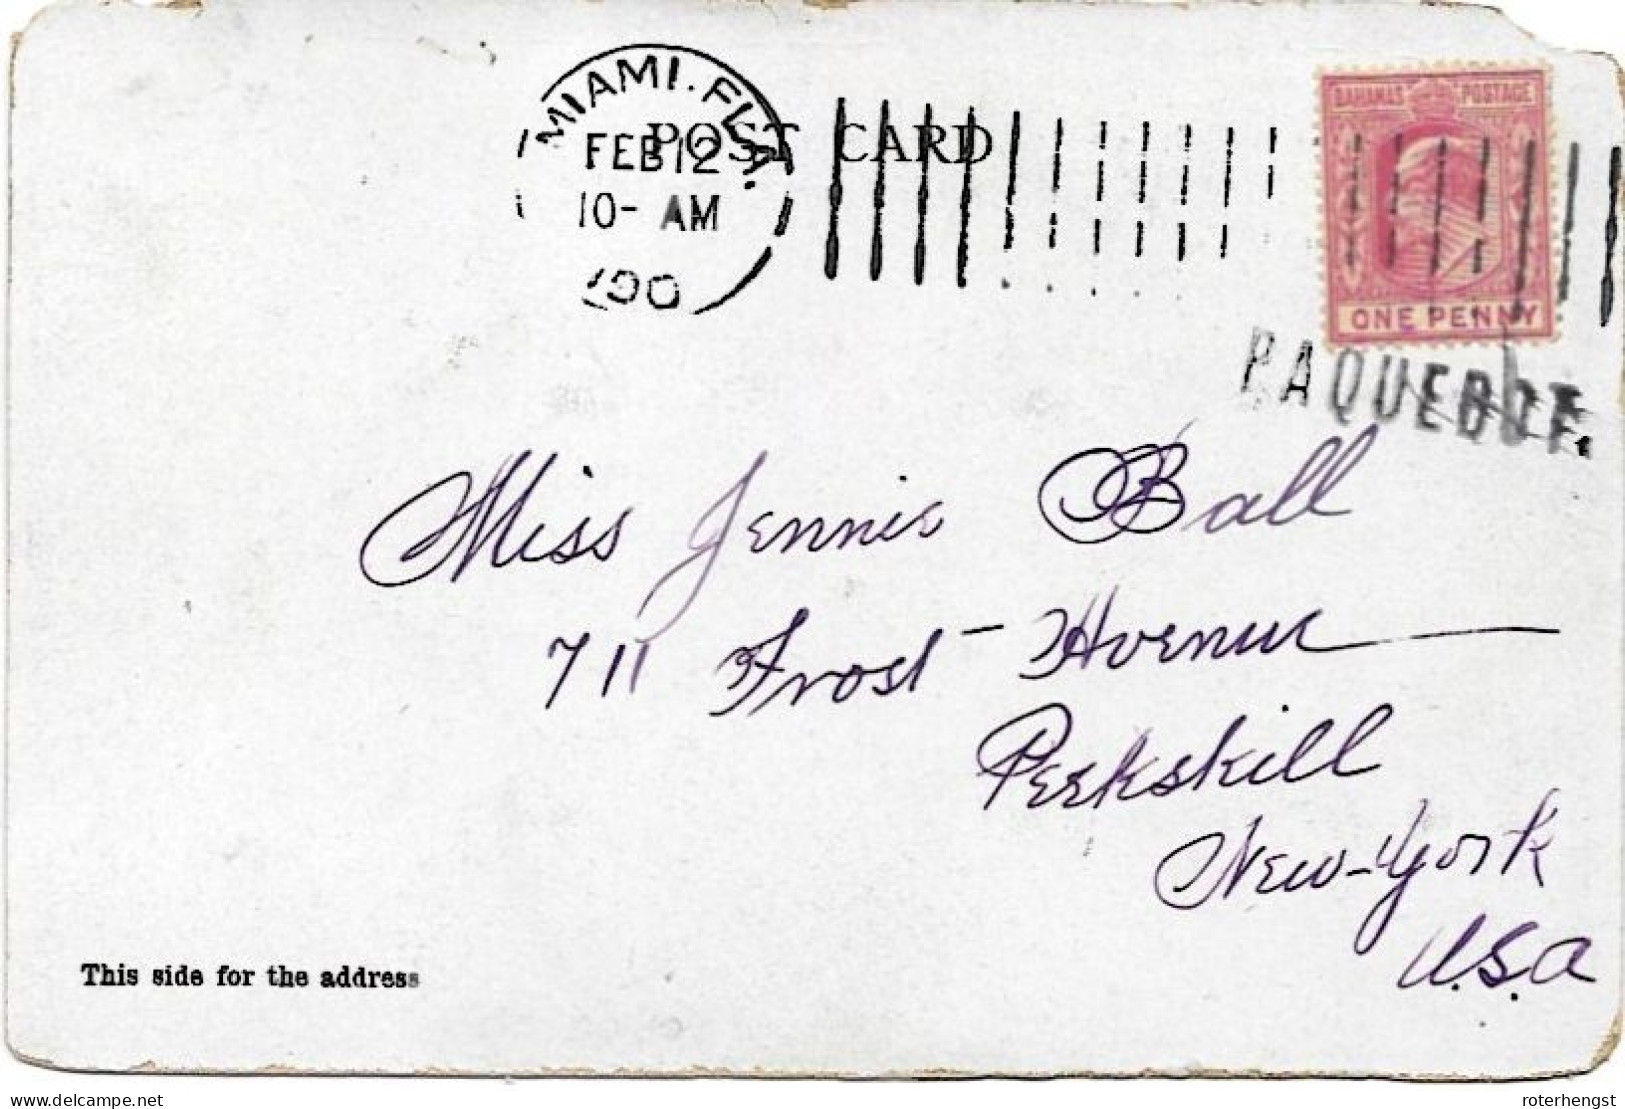 MIAMI. FLA.
FEB 12
10- AM
190
POST CARD
BAHAMAS POSTAGE
ONE PENNY
PAQUEBOT.
Miss Jennie Ball
711 Frost - Avenue
Peekskill
New-York
U.S.A
This side for the address
delcampe.net
roterhengst